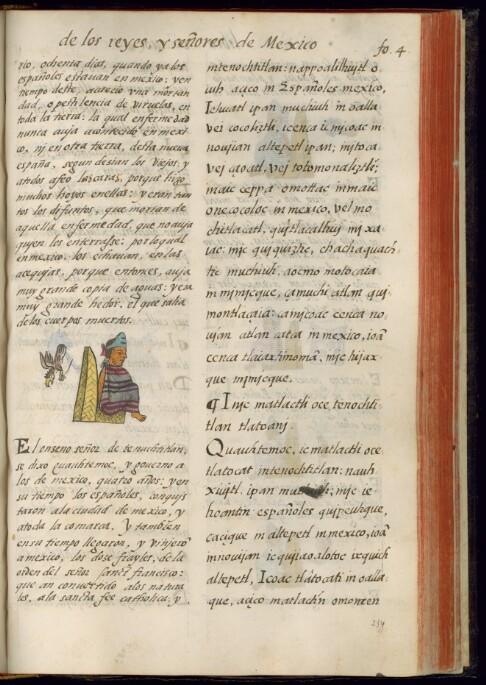 de los reyes, y señores de Mexico
fo. 4
rio, ochenta dias, quando ya los
españoles estauan en mexico: en
tiempo deste, aurecio vna mortan
dad, o pestilencia de viruelas, en
toda la tierra: la qual enfermedad
nunca auja acontecido en mexi
co, nj en otra tierra, desta nueua
españa, segun dezian los viejos: y
a todos afeo las caras, porque hizo
muchos hoyos en ellas: y eran tan
tos los difuntos, que morian de
aquella enfermedad, que no auja
quyen los enterrasse: por la qual
en mexico los echauan, en las
acequjas, porque entonces, auja
muy grande copia de aguas: y era
muy grande hedor, el que salia
de los cuerpos muertos.
El onzeno señor de tenuchtitlan,
se dixo quauhtemoc, y gouerno a
los de mexico, quatro años: y en
su tiempo los españoles, conquis
taron a la ciudad de mexico, y
a toda la comarca. Y tambien
en su tiempo llegaron, y vinjero
a mexico, los doze frayles, de la
orden del señor sanct francisco:
que an conuertido a los natura
les, a la sancta fee catholica, y
intenochtitlan: nappoalilhujtl o
uh, açico in Españoles mexico,
Iehuatl ipan muchiuh in oalla
vei cocoliztli, icenca ic mjcoac in
noujian altepetl ipan; mjtoca
vej çaoatl, vej totomonaliztli:
in aic ceppa omottac in maic
onecocoloc in mexico, vel mo
chitlacatl, qujtlacalhuj in jxa
iac: njc qujqujzhc, chachaquach
tic muchiuh, aocmo motocaia
in mjmjcque, çamuchi atlan quj
montlaçaia: ca njcoac cenca no
ujan atlan catca in mexico, ioã
cenca tlacaxtinomã. njc hijax
que mjmjcque.
¶ Injc matlactli oce tenochti
tlan tlatoanj
Quauhtemoc, ic matlactli oce
tlatocat intenochtitlan: nauh
xiujtl, ipan njc ie
hoantin españoles qujpeuhque,
cacique in altepetl in mexico, ioã
in noujian ic qujiaoalotoc ixquich
altepetl, Icoac tlatocati in oalla
que, açico matlactin omomen